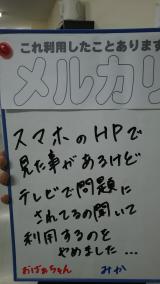 これ利用したことあります
メルカリ
スマホのHPで
見た事があるけど
テレビで問題に
されてるの聞いて
利用するのを
やめました…
おばあちゃん みか